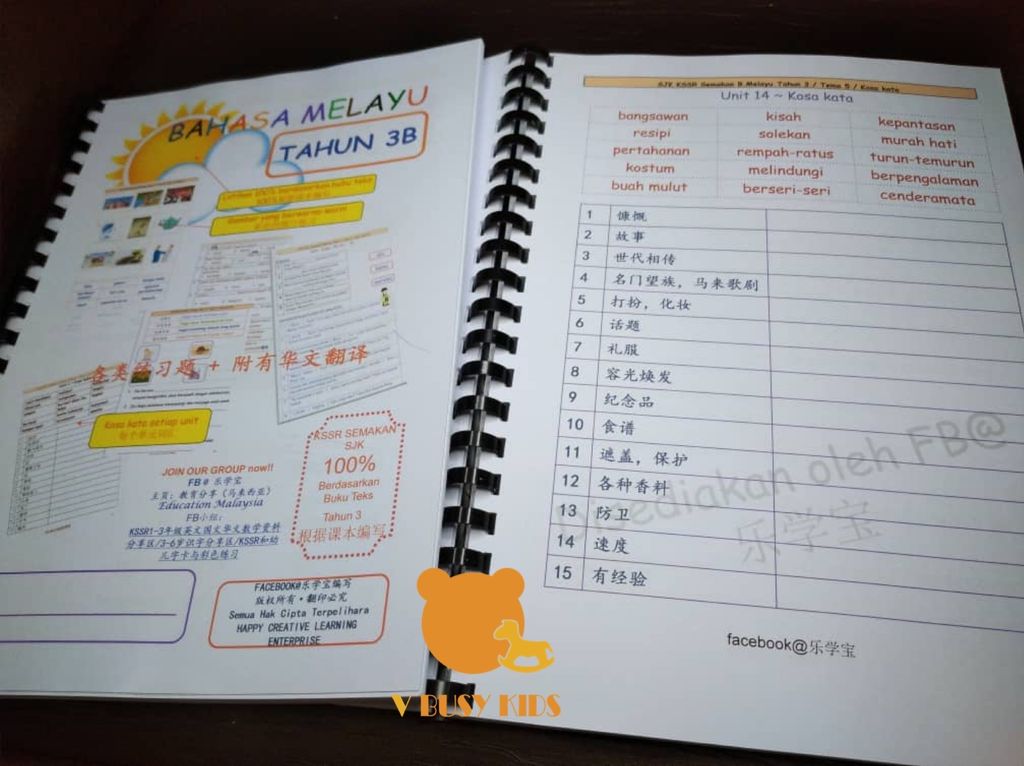 BAHASA MELAYU
TAHUN 3B
Latihan 100% berdasarkan buku teks
Gambar yang berwarna-warni
各类练习题 + 附有华文翻译
Kosa kata setiap unit
每个单元词汇
KSSR SEMAKAN
SJK
100%
Berdasarkan
Buku Teks
Tahun 3
根据课本编写
JOIN OUR GROUP now!!
FB@ 乐学宝
主页：教育分享（马来西亚）
Education Malaysia
FB小组：
KSSR1-3年级英文国文华文数学资料
分享区/3-6岁识字分享区/KSSR和幼
儿字卡与彩色练习
FACEBOOK@乐学宝编写
版权所有·翻印必究
Semua Hak Cipta Terpelihara
HAPPY CREATIVE LEARNING
ENTERPRISE
SJK KSSR Semakan B Melayu Tahun 3 / Tema 5 / Kosa kata
Unit 14 ~ Kosa kata
bangsawan kisah kepantasan
resipi solekan murah hati
pertahanan rempah-ratus turun-temurun
kostum melindungi berpengalaman
buah mulut berseri-seri cenderamata
1 慷慨
2 故事
3 世代相传
4 名门望族，马来歌剧
5 打扮，化妆
6 话题
7 礼服
8 容光焕发
9 纪念品
10 食谱
11 遮盖，保护
12 各种香料
13 防卫
14 速度
15 有经验
Disediakan oleh FB@
乐学宝
facebook@乐学宝
V BUSY KIDS